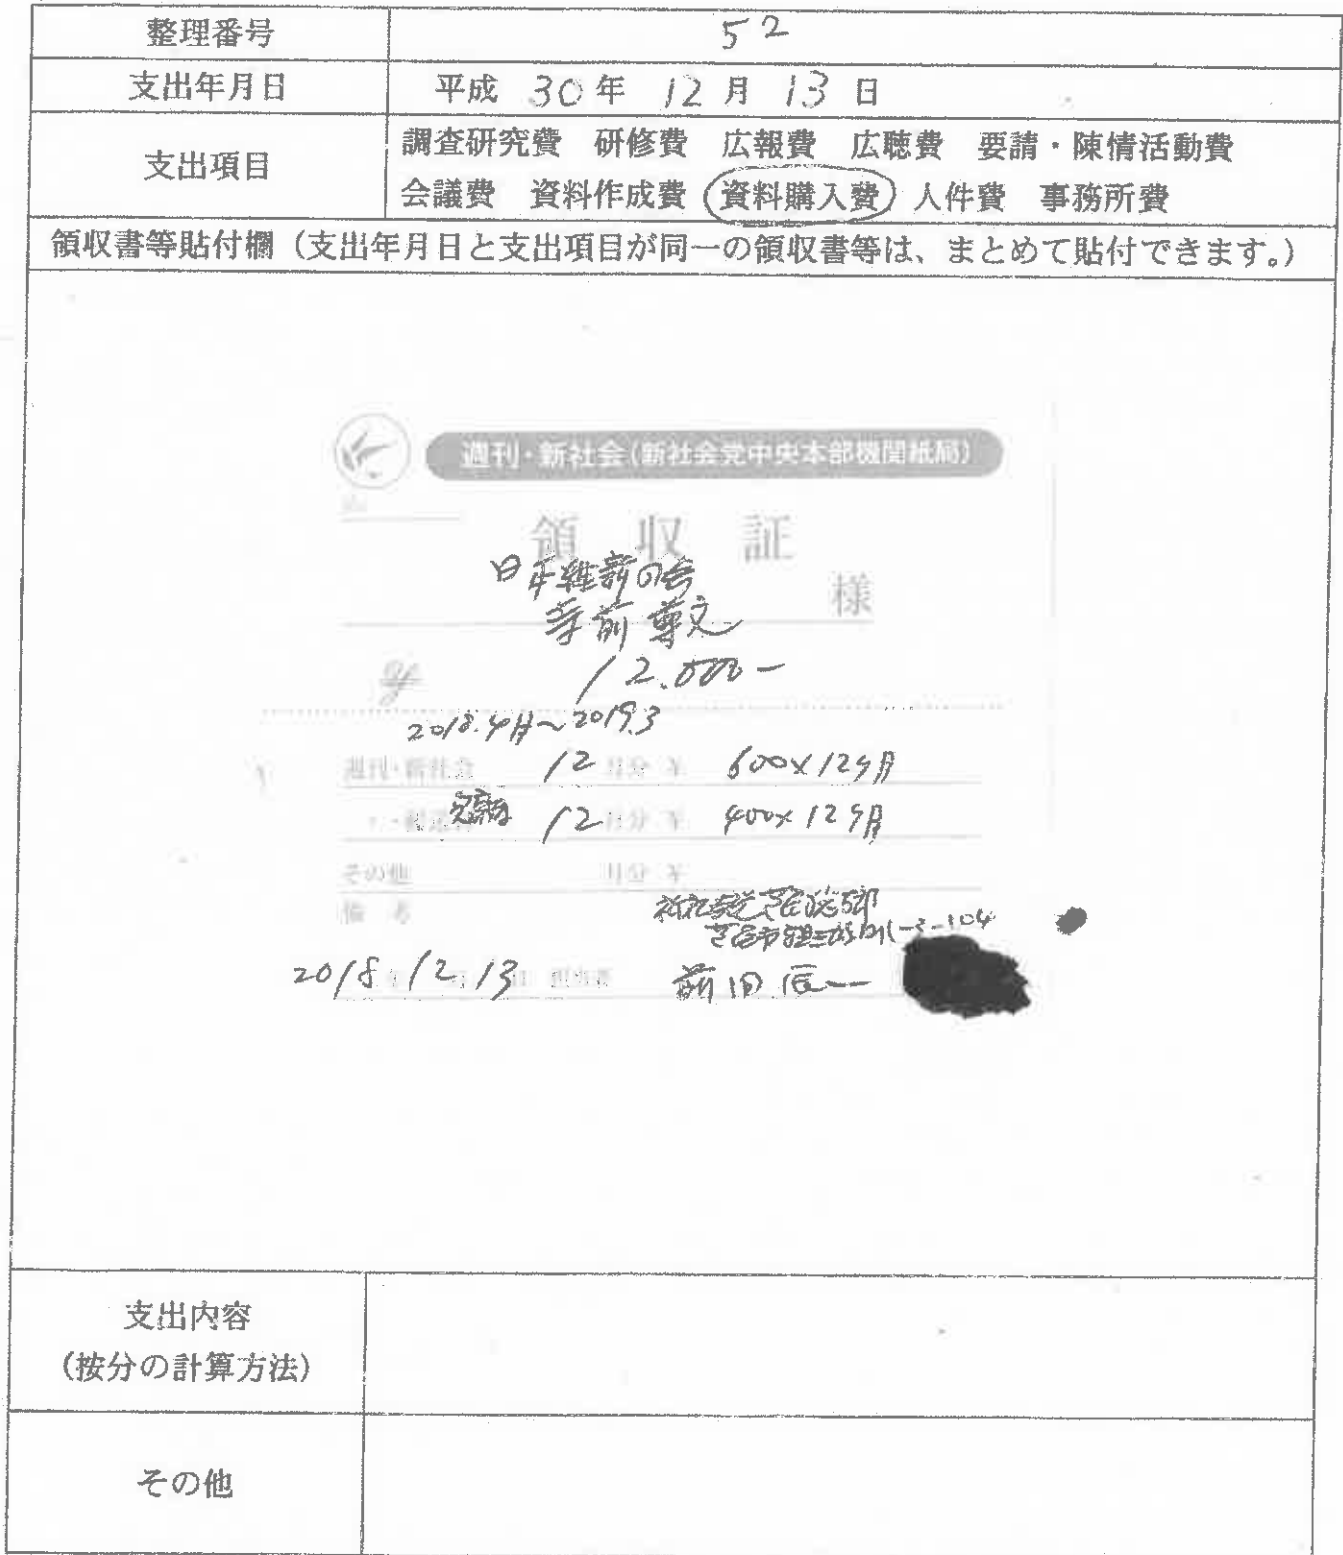 整理番号 52
支出年月日 平成 30年 12月 13日
支出項目 調査研究費 研修費 広報費 広聴費 要請・陳情活動費
会議費 資料作成費 資料購入費 人件費 事務所費
領収書等貼付欄（支出年月日と支出項目が同一の領収書等は、まとめて貼付できます。）
週刊・新社会(新社会党中央本部機関紙局)
No.
領収証
日本維新の会
前 尊文 様
12.000-
2018.4月～2019.3
週刊・新社会 12 月分 ¥ 600×12ヶ月
12 月分 ¥ 400×12ヶ月
その他 月分 ¥
備考
2018 12 13 担当者 前田辰一
支出内容
（按分の計算方法）
その他